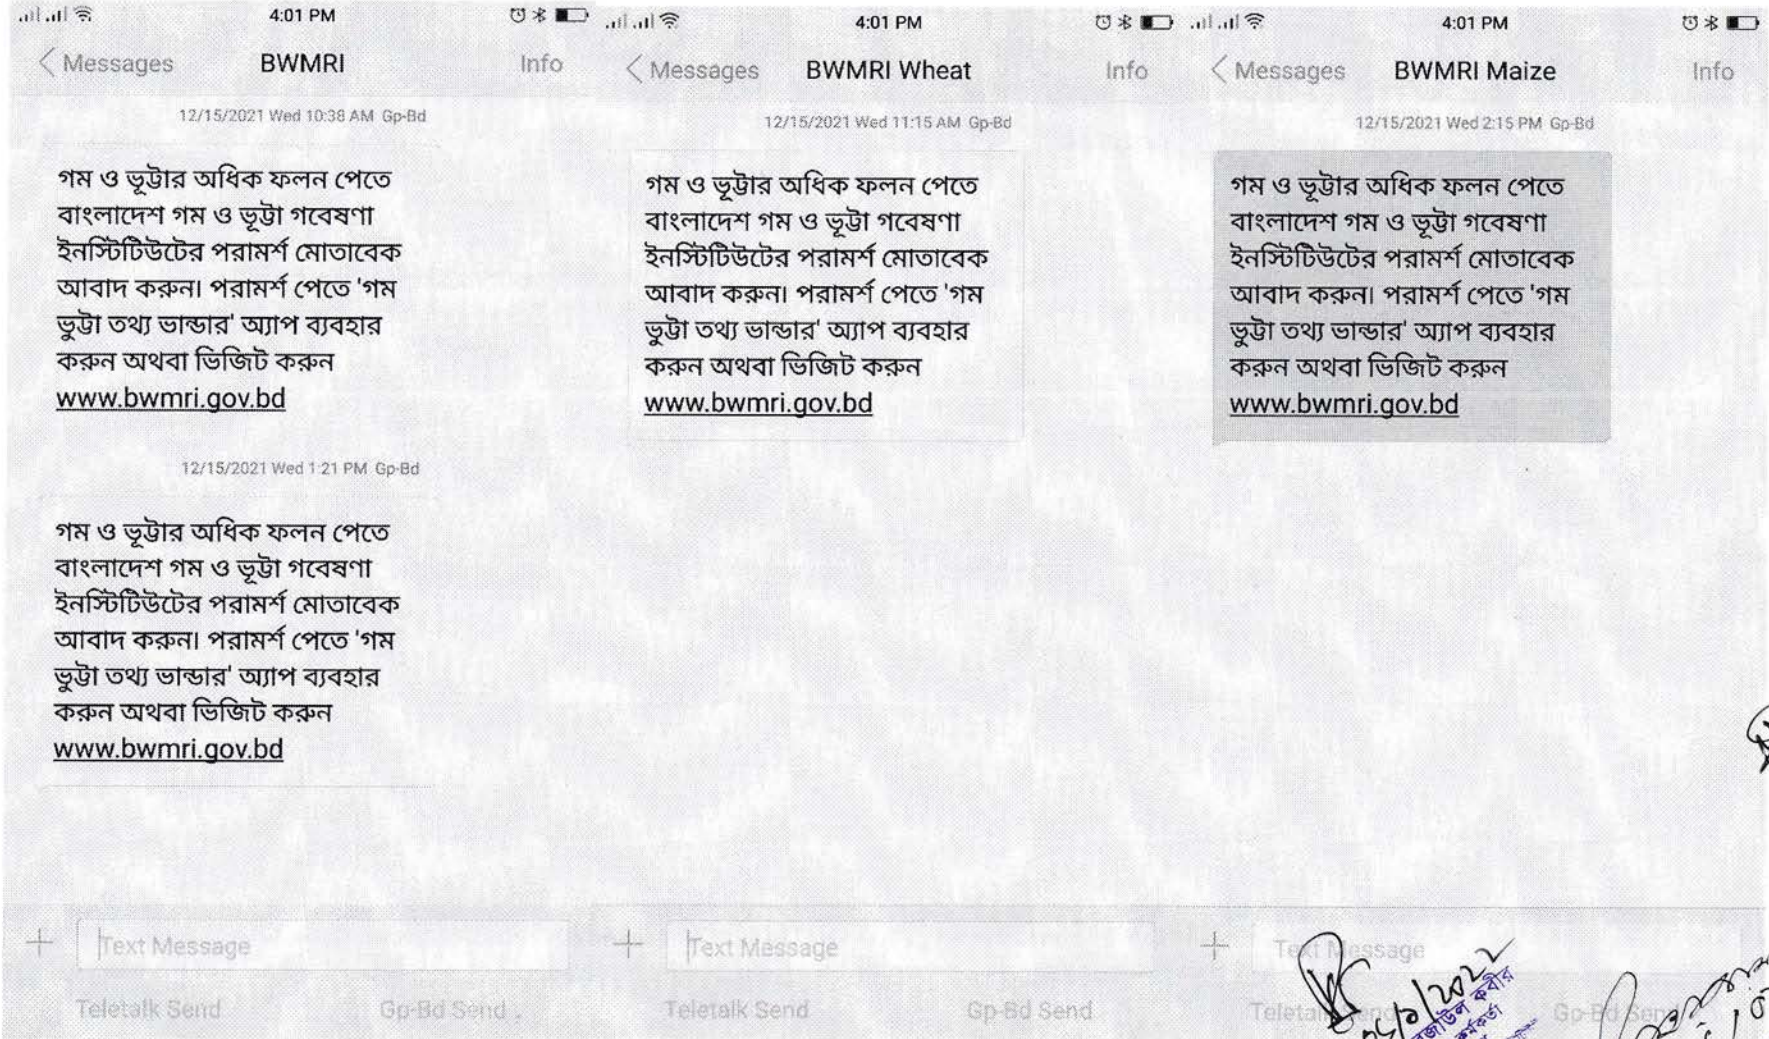 4:01 PM
Messages BWMRI Info
12/15/2021 Wed 10:38 AM Gp-Bd
গম ও ভূট্টার অধিক ফলন পেতে
বাংলাদেশ গম ও ভূট্টা গবেষণা
ইনস্টিটিউটের পরামর্শ মোতাবেক
আবাদ করুন। পরামর্শ পেতে 'গম
ভুট্টা তথ্য ভান্ডার' অ্যাপ ব্যবহার
করুন অথবা ভিজিট করুন
www.bwmri.gov.bd
12/15/2021 Wed 1:21 PM Gp-Bd
গম ও ভূট্টার অধিক ফলন পেতে
বাংলাদেশ গম ও ভূট্টা গবেষণা
ইনস্টিটিউটের পরামর্শ মোতাবেক
আবাদ করুন। পরামর্শ পেতে 'গম
ভুট্টা তথ্য ভান্ডার' অ্যাপ ব্যবহার
করুন অথবা ভিজিট করুন
www.bwmri.gov.bd
Text Message
Teletalk Send Gp-Bd Send
4:01 PM
Messages BWMRI Wheat Info
12/15/2021 Wed 11:15 AM Gp-Bd
গম ও ভূট্টার অধিক ফলন পেতে
বাংলাদেশ গম ও ভূট্টা গবেষণা
ইনস্টিটিউটের পরামর্শ মোতাবেক
আবাদ করুন। পরামর্শ পেতে 'গম
ভুট্টা তথ্য ভান্ডার' অ্যাপ ব্যবহার
করুন অথবা ভিজিট করুন
www.bwmri.gov.bd
Text Message
Teletalk Send Gp-Bd Send
4:01 PM
Messages BWMRI Maize Info
12/15/2021 Wed 2:15 PM Gp-Bd
গম ও ভূট্টার অধিক ফলন পেতে
বাংলাদেশ গম ও ভূট্টা গবেষণা
ইনস্টিটিউটের পরামর্শ মোতাবেক
আবাদ করুন। পরামর্শ পেতে 'গম
ভুট্টা তথ্য ভান্ডার' অ্যাপ ব্যবহার
করুন অথবা ভিজিট করুন
www.bwmri.gov.bd
Text Message
Gp-Bd Send
কবীর